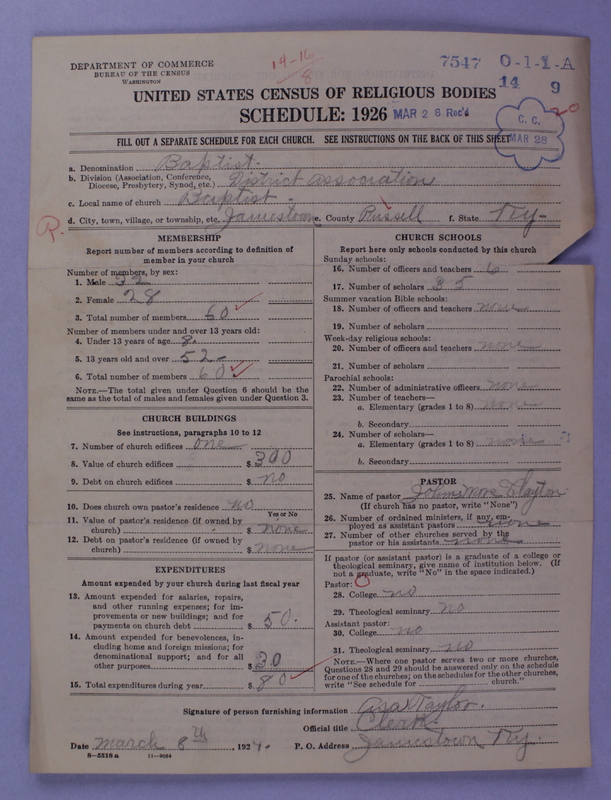 DEPARTMENT OF COMMERCE
BUREAU OF THE CENSUS
WASHINGTON
14-16
8
7547 0-1-1-A
14 9
20
UNITED STATES CENSUS OF RELIGIOUS BODIES
SCHEDULE: 1926 MAR 28 Rec'd
C. C.
MAR 28
FILL OUT A SEPARATE SCHEDULE FOR EACH CHURCH. SEE INSTRUCTIONS ON THE BACK OF THIS SHEET
a. Denomination Baptist
b. Division (Association, Conference, Diocese, Presbytery, Synod, etc.) District association
c. Local name of church Baptist
d. City, town, village, or township, etc. Jamestown e. County Russell f. State Ky-
R.
MEMBERSHIP
Report number of members according to definition of
member in your church
Number of members, by sex:
1. Male 32
2. Female 28
3. Total number of members 60
Number of members under and over 13 years old:
4. Under 13 years of age 8.
5. 13 years old and over 52-
6. Total number of members 60
NOTE.—The total given under Question 6 should be the
same as the total of males and females given under Question 3.
CHURCH BUILDINGS
See instructions, paragraphs 10 to 12
7. Number of church edifices one
8. Value of church edifices $ 300
9. Debt on church edifices $ no
10. Does church own pastor's residence no
Yes or No
11. Value of pastor's residence (if owned by
church) $ none
12. Debt on pastor's residence (if owned by
church) $ none
EXPENDITURES
Amount expended by your church during last fiscal year
13. Amount expended for salaries, repairs,
and other running expenses; for im-
provements or new buildings; and for
payments on church debt $ 50.
14. Amount expended for benevolences, in-
cluding home and foreign missions; for
denominational support; and for all
other purposes $ 30
15. Total expenditures during year $ 80
CHURCH SCHOOLS
Report here only schools conducted by this church
Sunday schools:
16. Number of officers and teachers 6
17. Number of scholars 35
Summer vacation Bible schools:
18. Number of officers and teachers none
19. Number of scholars
Week-day religious schools:
20. Number of officers and teachers none
21. Number of scholars
Parochial schools:
22. Number of administrative officers none
23. Number of teachers—
a. Elementary (grades 1 to 8) none
b. Secondary
24. Number of scholars—
a. Elementary (grades 1 to 8) none
b. Secondary
PASTOR
25. Name of pastor Clayton
(If church has no pastor, write "None")
26. Number of ordained ministers, if any, em-
ployed as assistant pastors none
27. Number of other churches served by the
pastor or his assistants none
If pastor (or assistant pastor) is a graduate of a college or
theological seminary, give name of institution below. (If
not a graduate, write "No" in the space indicated.)
Pastor:
28. College no
29. Theological seminary no
Assistant pastor:
30. College no
31. Theological seminary no
NOTE.—Where one pastor serves two or more churches,
Questions 28 and 29 should be answered only on the schedule
for one of the churches; on the schedules for the other churches,
write "See schedule for church."
Signature of person furnishing information Asa Taylor.
Official title Cleark.
Date March 8th, 1927. P. O. Address Jamestown Ky.
8—5518 a 11—9054